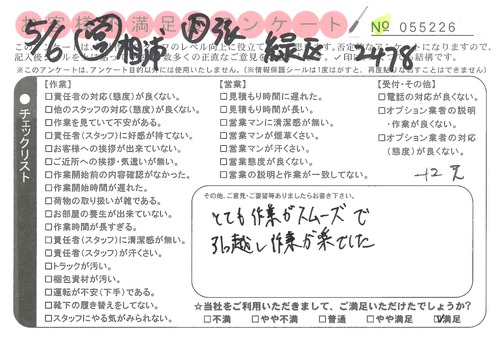 お客様満足度アンケート
№ 055226
5/6 相浦 張 緑区 2478
チェックリスト
【作業】
□責任者の対応(態度)が良くない。
□他のスタッフの対応(態度)が良くない。
□作業を見ていて不安がある。
□責任者(スタッフ)に好感が持てない。
□お客様への挨拶が出来ていない。
□ご近所への挨拶・気遣いが無い。
□作業開始前の内容確認がなかった。
□作業開始時間が遅れた。
□荷物の取り扱いが雑である。
□お部屋の養生が出来ていない。
□作業時間が長すぎる。
□責任者(スタッフ)に清潔感が無い。
□責任者(スタッフ)が汗くさい。
□トラックが汚い。
□梱包資材が汚い。
□運転が不安(下手)である。
□靴下の履き替えをしてない。
□スタッフにやる気がみられない。
【営業】
□見積もり時間に遅れた。
□見積もり時間が長い。
□営業マンに清潔感が無い。
□営業マンが煙草くさい。
□営業マンが汗くさい。
□営業態度が良くない。
□営業の説明と作業が一致してない。
【受付・その他】
□電話の対応が良くない。
□オプション業者の説明
・作業が良くない。
□オプション業者の対応
(態度)が良くない。
その他、ご意見・ご要望等ありましたらお書き下さい。
とても作業がスムーズで
引越し作業が楽でした
☆当社をご利用いただきまして、ご満足いただけたでしょうか?
□不満 □やや不満 □普通 □やや満足 ☑満足